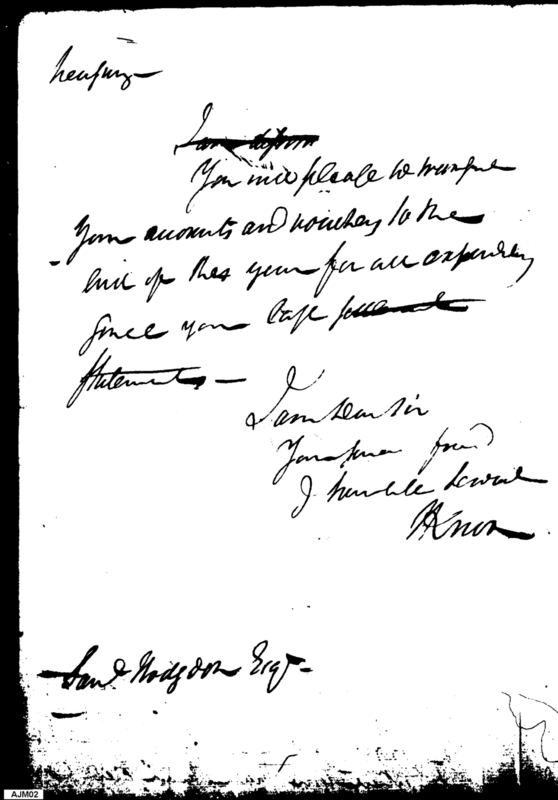 I am
You will please to transfer
Your accounts and vouchers to the
end of this year for all expenditures
Since your last settlement
Statements —
I am dear sir
Your friend
& humble Servant
HKnox
Saml Hodgdon Esqr -
AJM02